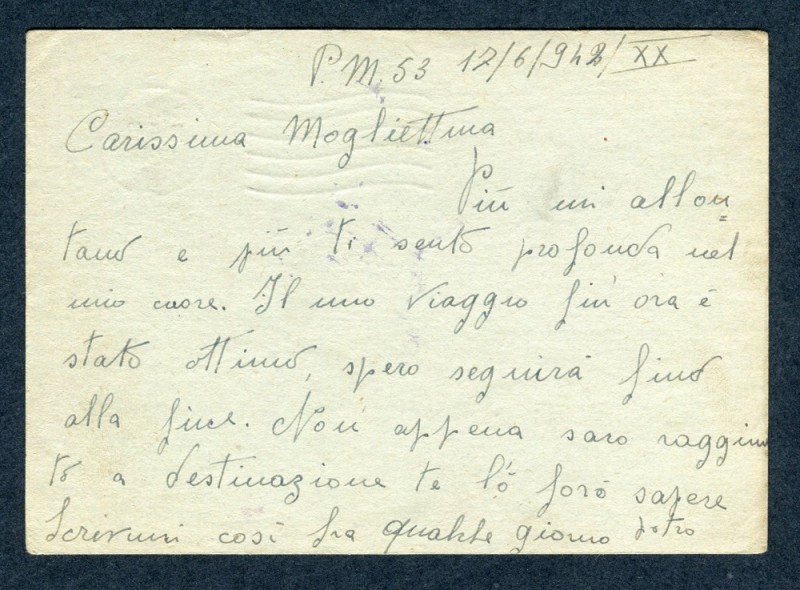 P.M. 53 12/6/942/XX
Carissima Mogliettina
Più mi allon=
tano e più ti sento profonda nel
mio cuore. Il mio viaggio fin ora è
stato ottimo, spero seguirà fino
alla fine. Non appena saro raggiun
to a destinazione te lò farò sapere
Scrivimi così fra qualche giorno potro